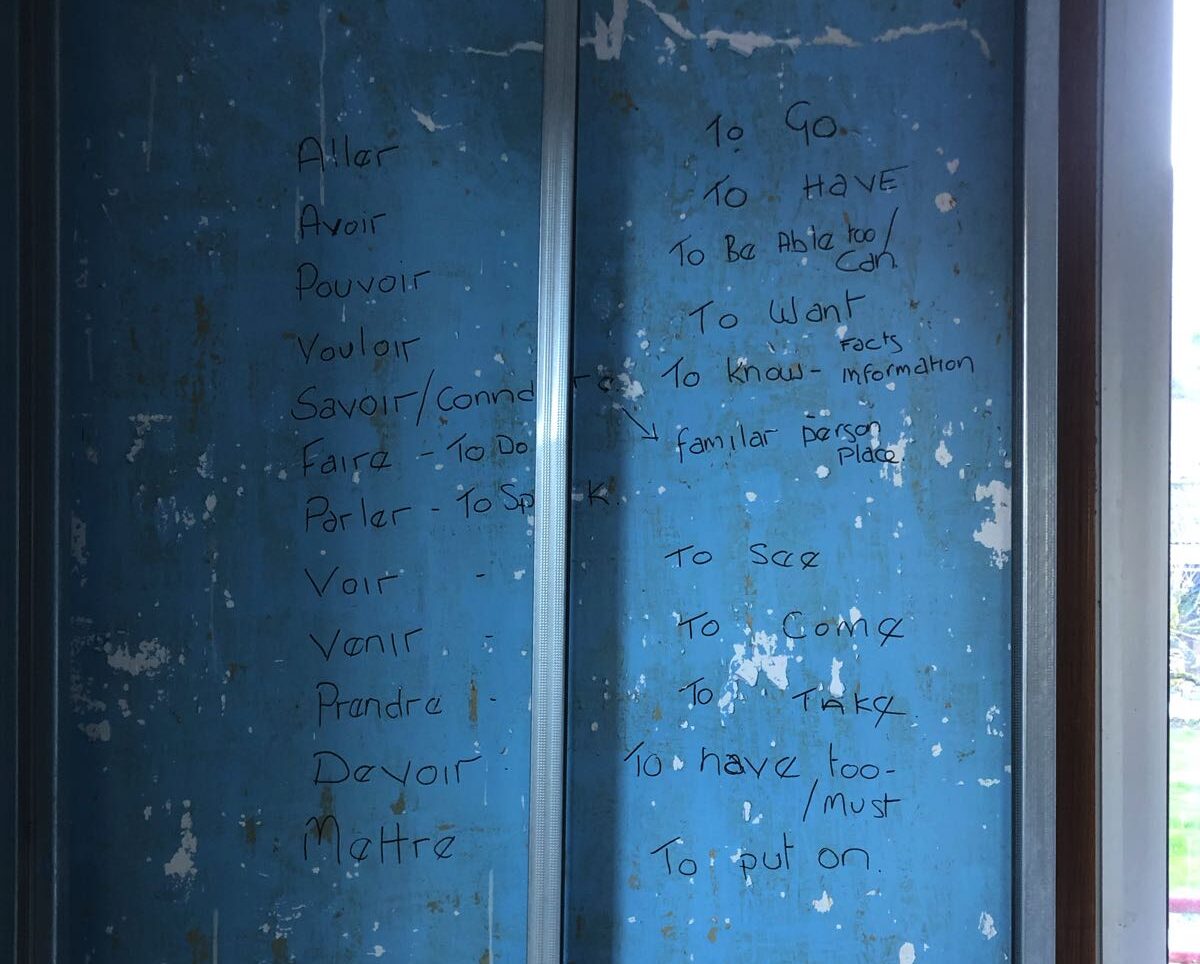 Aller To Go.
Avoir To HAVE
Pouvoir To Be Able too/
Can.
Vouloir To Want
Facts
Savoir/Connaitre To know - information
familar person
Place
Faire - To Do
Parler - To Speak.
Voir - To See
Venir - To Come
Prendre - To TAKe.
Devoir - To have too-
/Must
Mettre To put on.